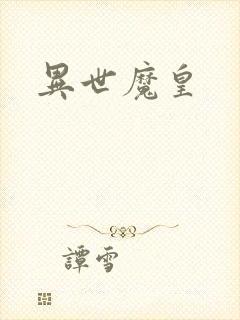 異世魔皇
譚雪